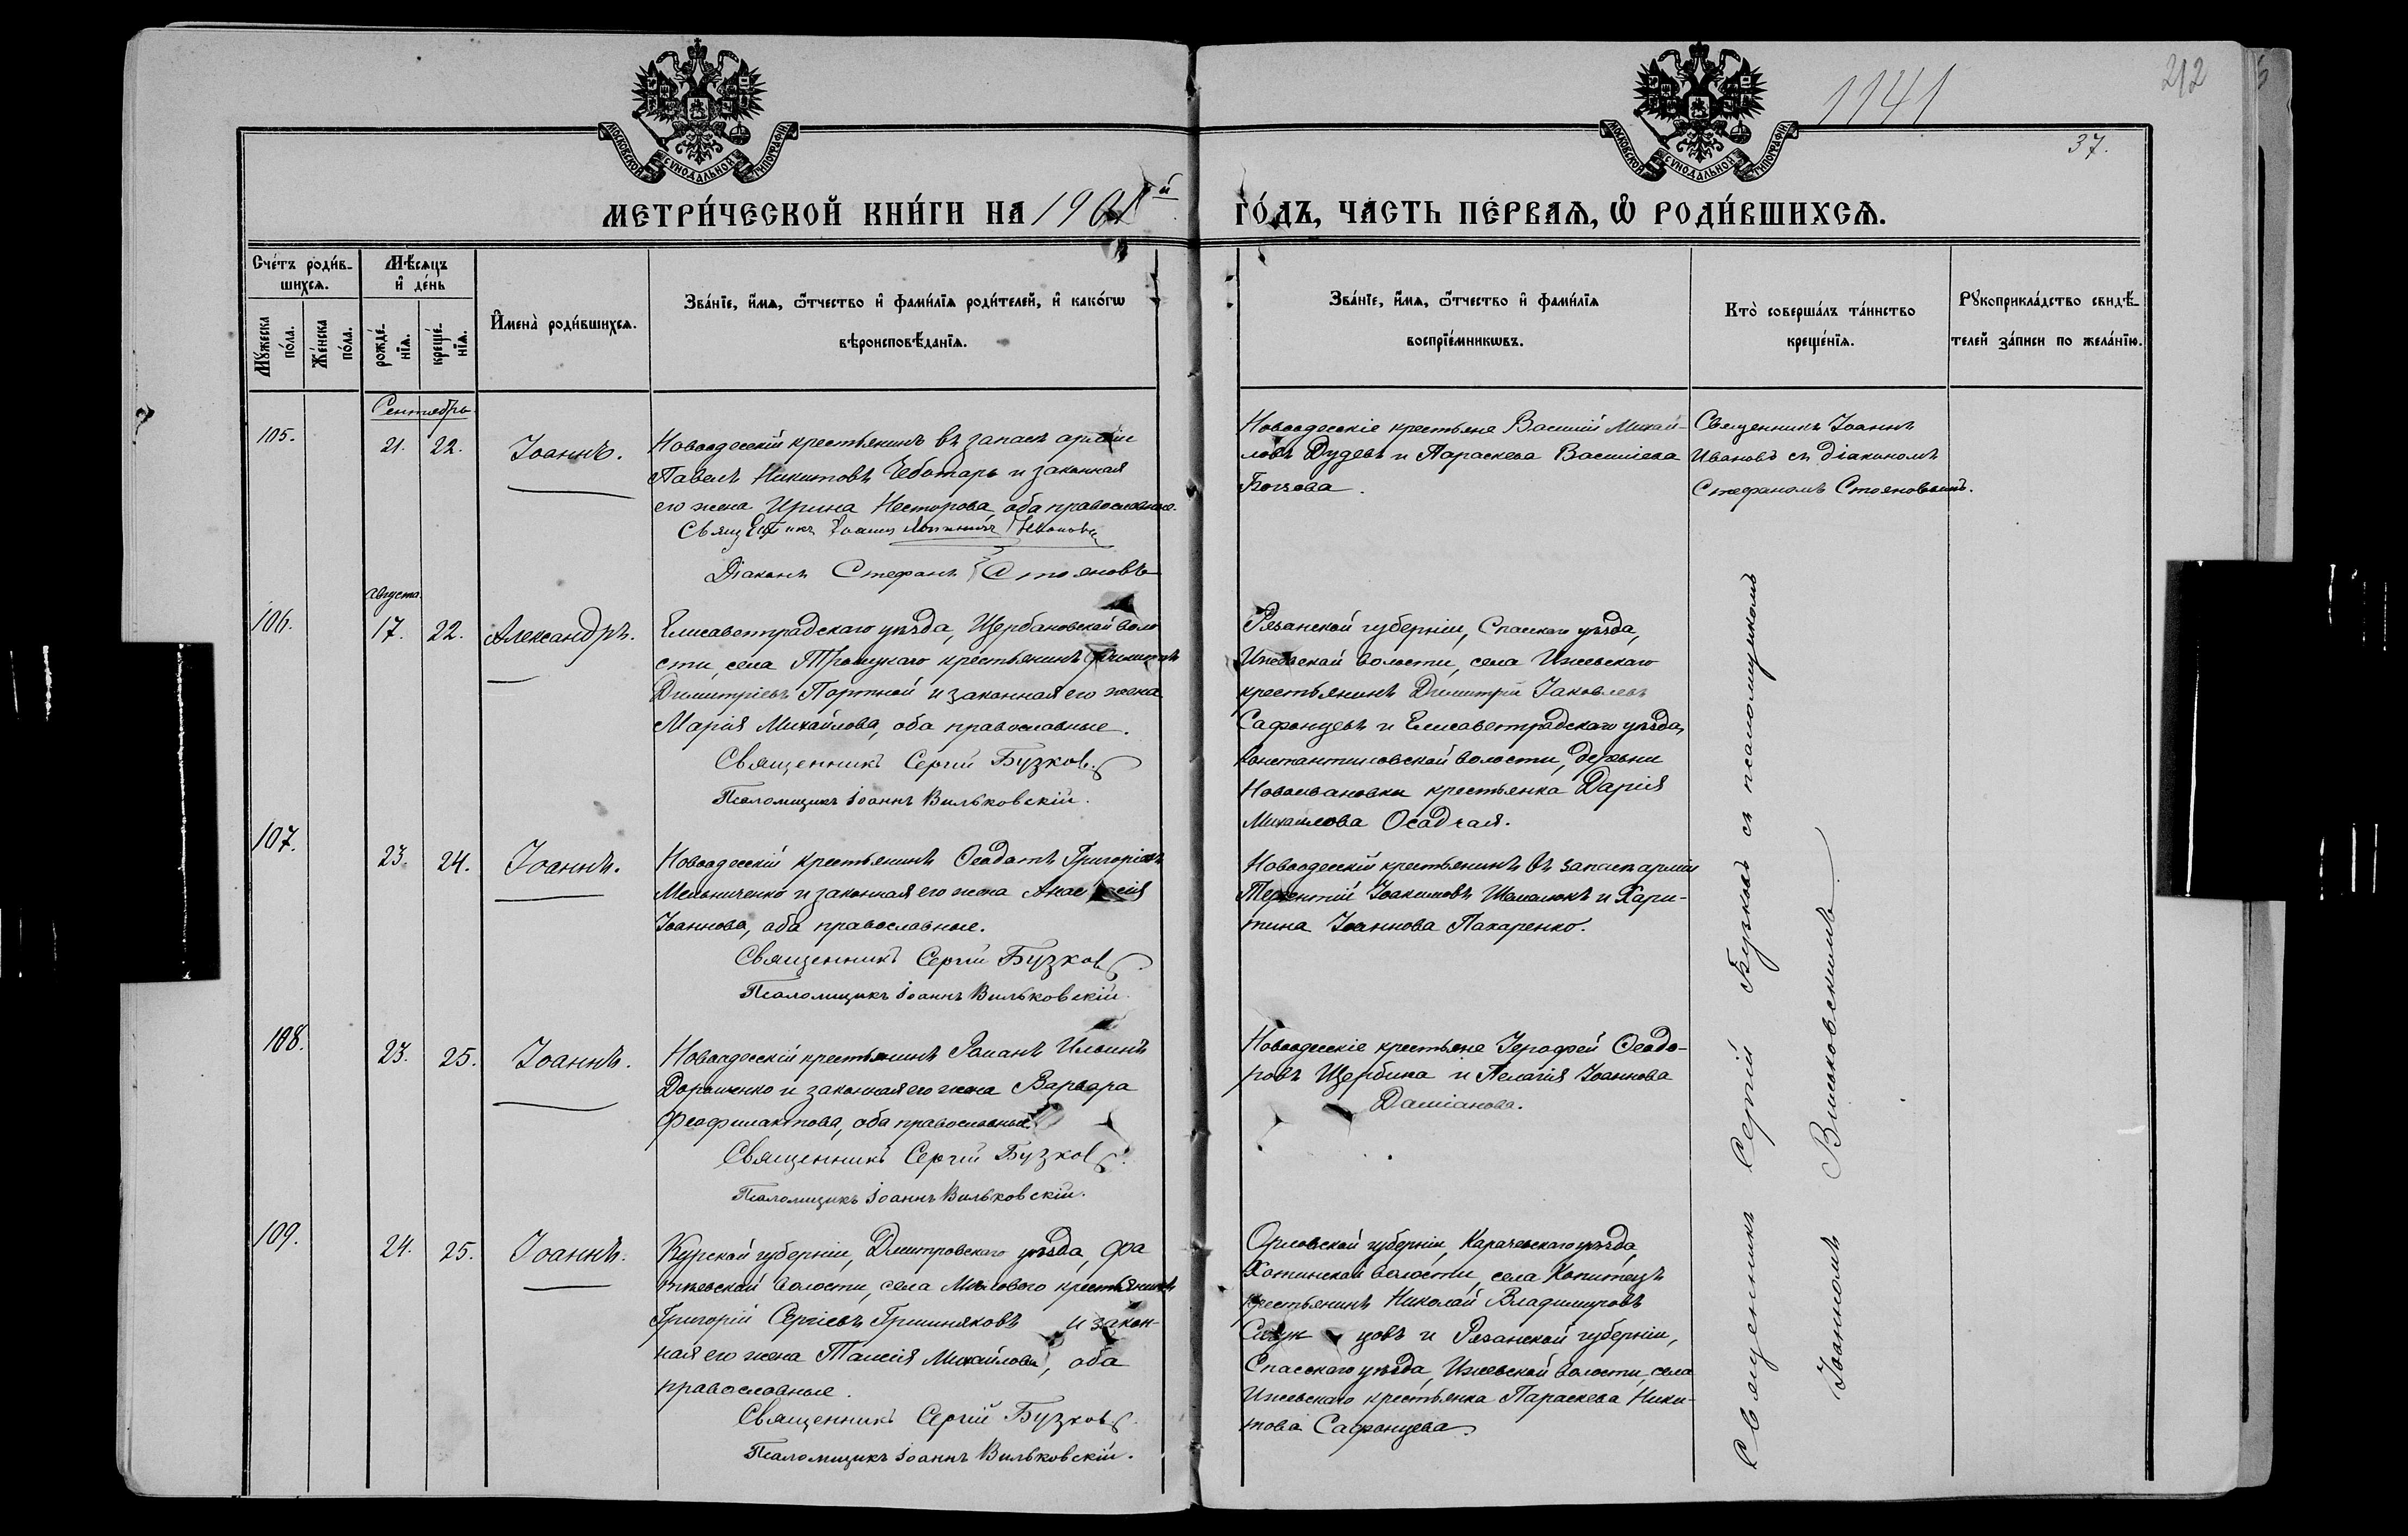 1141
212
37.
МОСКОВСКОЙ СѴНОДАЛЬНОЙ ТИПОГРАФІИ
МОСКОВСКОЙ СѴНОДАЛЬНОЙ ТИПОГРАФІИ
МЕТРИ́ЧЕСКОЙ КНИ́ГИ НА 1901й ГО́ДЪ, ЧА́СТЬ ПЕ́РВАѦ, Ѡ҆ РОДИ́ВШИХСѦ.
Сче́тъ роди́в-
шихсѧ.
Мꙋ́жеска
по́ла.
Же́нска
по́ла.
Мѣ́сѧцъ
и҆ де́нь
рожде́-
нїѧ.
креще́-
нїѧ.
И҆мена̀ роди́вшихсѧ.
Зва́нїе, и҆́мѧ, ѻ҆́тчество и҆ фами́лїѧ роди́телей, и҆ како́гѡ
вѣроисповѣ́данїѧ.
Зва́нїе, и҆́мѧ, ѻ҆́тчество и҆ фами́лїѧ
воспрїе́мникѡвъ.
Кто̀ соверша́лъ та́инство
креще́нїѧ.
Рꙋкоприкла́дство свидѣ́-
телей за́писи по жела́нїю.
Сентябрь
105.
21.
22.
Іоаннъ.
Новоодесскій крестьянинъ въ запасѣ арміи
Павелъ Никитовъ Чеботарь и законная
его жена Ирина Несторова, оба православные.
Священникъ Іоаннъ Ивановъ
Діаконъ Стефанъ Стояновъ
Новоодесскіе крестьяне Василій Михай-
ловъ Дудевъ и Параскева Василіева
Священникъ Іоаннъ
Ивановъ съ діакономъ
Стефаномъ Стояновымъ.
Августа
106.
17.
22.
Александръ.
Елисаветградскаго уѣзда, Щербановской воло
сти, села Троицкаго крестьянинъ
Димитріевъ Портной и законная его жена
Марія Михайлова, оба православные.
Священникъ Сергій Бузковъ
Псаломщикъ Іоаннъ Вильковскій.
Рязанской губерніи, Спасскаго уѣзда,
Ижевской волости, села Ижевскаго
крестьянинъ Димитрій Іаковлевъ
Сафонцевъ и Елисаветградскаго уѣзда,
Константиновской волости, деревни
Новоивановки крестьянка Дарія
Михаилова Осадчая.
107.
23.
24.
Іоаннъ.
Новоодесскій крестьянинъ Ѳеодотъ Григоріевъ
Мельниченко и законная его жена Анастасія
Іоаннова, оба православные.
Священникъ Сергій Бузковъ
Псаломщикъ Іоаннъ Вильковскій.
Новоодесскій крестьянинъ въ запасѣ арміи
Терентій Іоакимовъ Шамалюкъ и Хари-
тина Іоаннова Пахаренко.
108.
23.
25.
Іоаннъ.
Новоодесскій крестьянинъ Романъ Ильинъ
Дорошенко и законная его жена Варвара
Феофилактова, оба православные.
Священникъ Сергій Бузковъ
Псаломщикъ Іоаннъ Вильковскій.
Новоодесскіе крестьяне Іерофей Ѳеодо-
ровъ Щербина и Пелагія Іоаннова
Даміанова.
109.
24.
25.
Іоаннъ.
Курской губерніи, Дмитровскаго уѣзда, Фа
тѣевской волости, села Милового крестьянинъ
Григорій Сергіевъ Гришняковъ и закон-
ная его жена Таисія Михайлова, оба
православные.
Священникъ Сергій Бузковъ
Псаломщикъ Іоаннъ Вильковскій.
Орловской губерніи, Карачевскаго уѣзда,
Хотинской волости, села Копитецъ
крестьянинъ Николай Владимировъ
цовъ и Рязанской губерніи,
Спасскаго уѣзда, Ижевской волости, села
Ижевскаго крестьянка Параскева Ники-
това Сафонцева
Священникъ Сергій Бузковъ съ псаломщикомъ
Іоанномъ Вильковскимъ